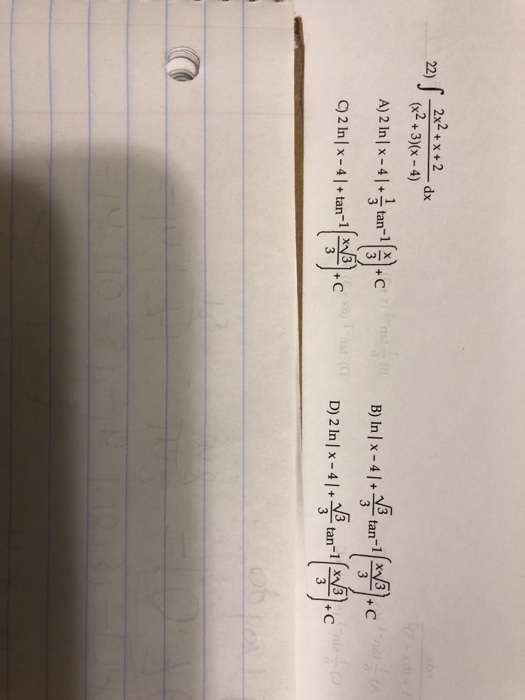 22) ∫ (2x² + x + 2)/((x² + 3)(x - 4)) dx
A) 2 ln | x - 4 | + 1/3 tan⁻¹ (x/3) + C
B) ln | x - 4 | + √3/3 tan⁻¹ (x√3/3) + C
C) 2 ln | x - 4 | + tan⁻¹ (x√3/3) + C
D) 2 ln | x - 4 | + √3/3 tan⁻¹ (x√3/3) + C